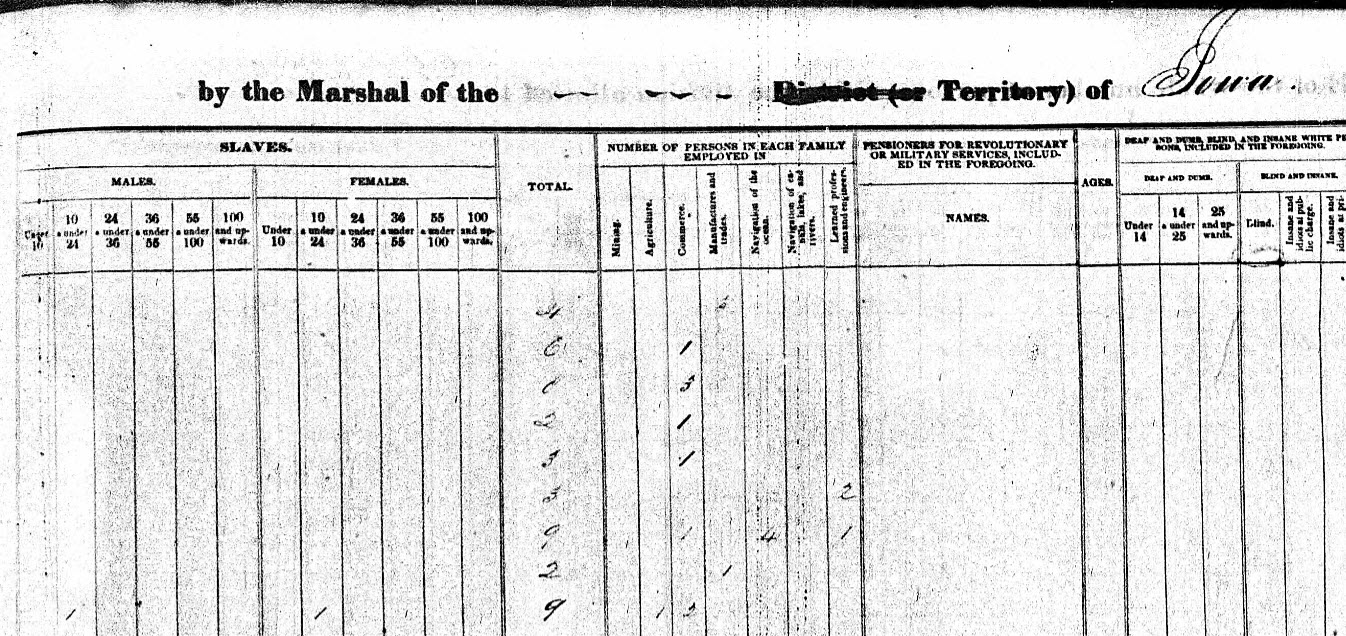 by the Marshal of the — — — — — District (or Territory) of Iowa.
SLAVES.
MALES.
FEMALES.
TOTAL.
NUMBER OF PERSONS IN EACH FAMILY
EMPLOYED IN
PENSIONERS FOR REVOLUTIONARY
OR MILITARY SERVICES, INCLUD-
ED IN THE FOREGOING.
NAMES.
AGES.
DEAF AND DUMB, BLIND, AND INSANE WHITE PE
SONS, INCLUDED IN THE FOREGOING.
DEAF AND DUMB.
BLIND AND INSANE.
Under 10
10 a under 24
24 a under 36
36 a under 55
55 a under 100
100 and up-wards.
Under 10
10 a under 24
24 a under 36
36 a under 55
55 a under 100
100 and up-wards.
Mining.
Agriculture.
Commerce.
Manufactures and trades.
Navigation of the ocean.
Navigation of ca-nals, lakes, and rivers.
Learned profes-sions and engineers.
Under 14
14 a under 25
25 and up-wards.
Blind.
Insane and idiots at pub-lic charge.
Insane and idiots at pri-
4
6 1
3
1
3 1
3 2
9 1 4 1
2 1
1 1 9 1 2